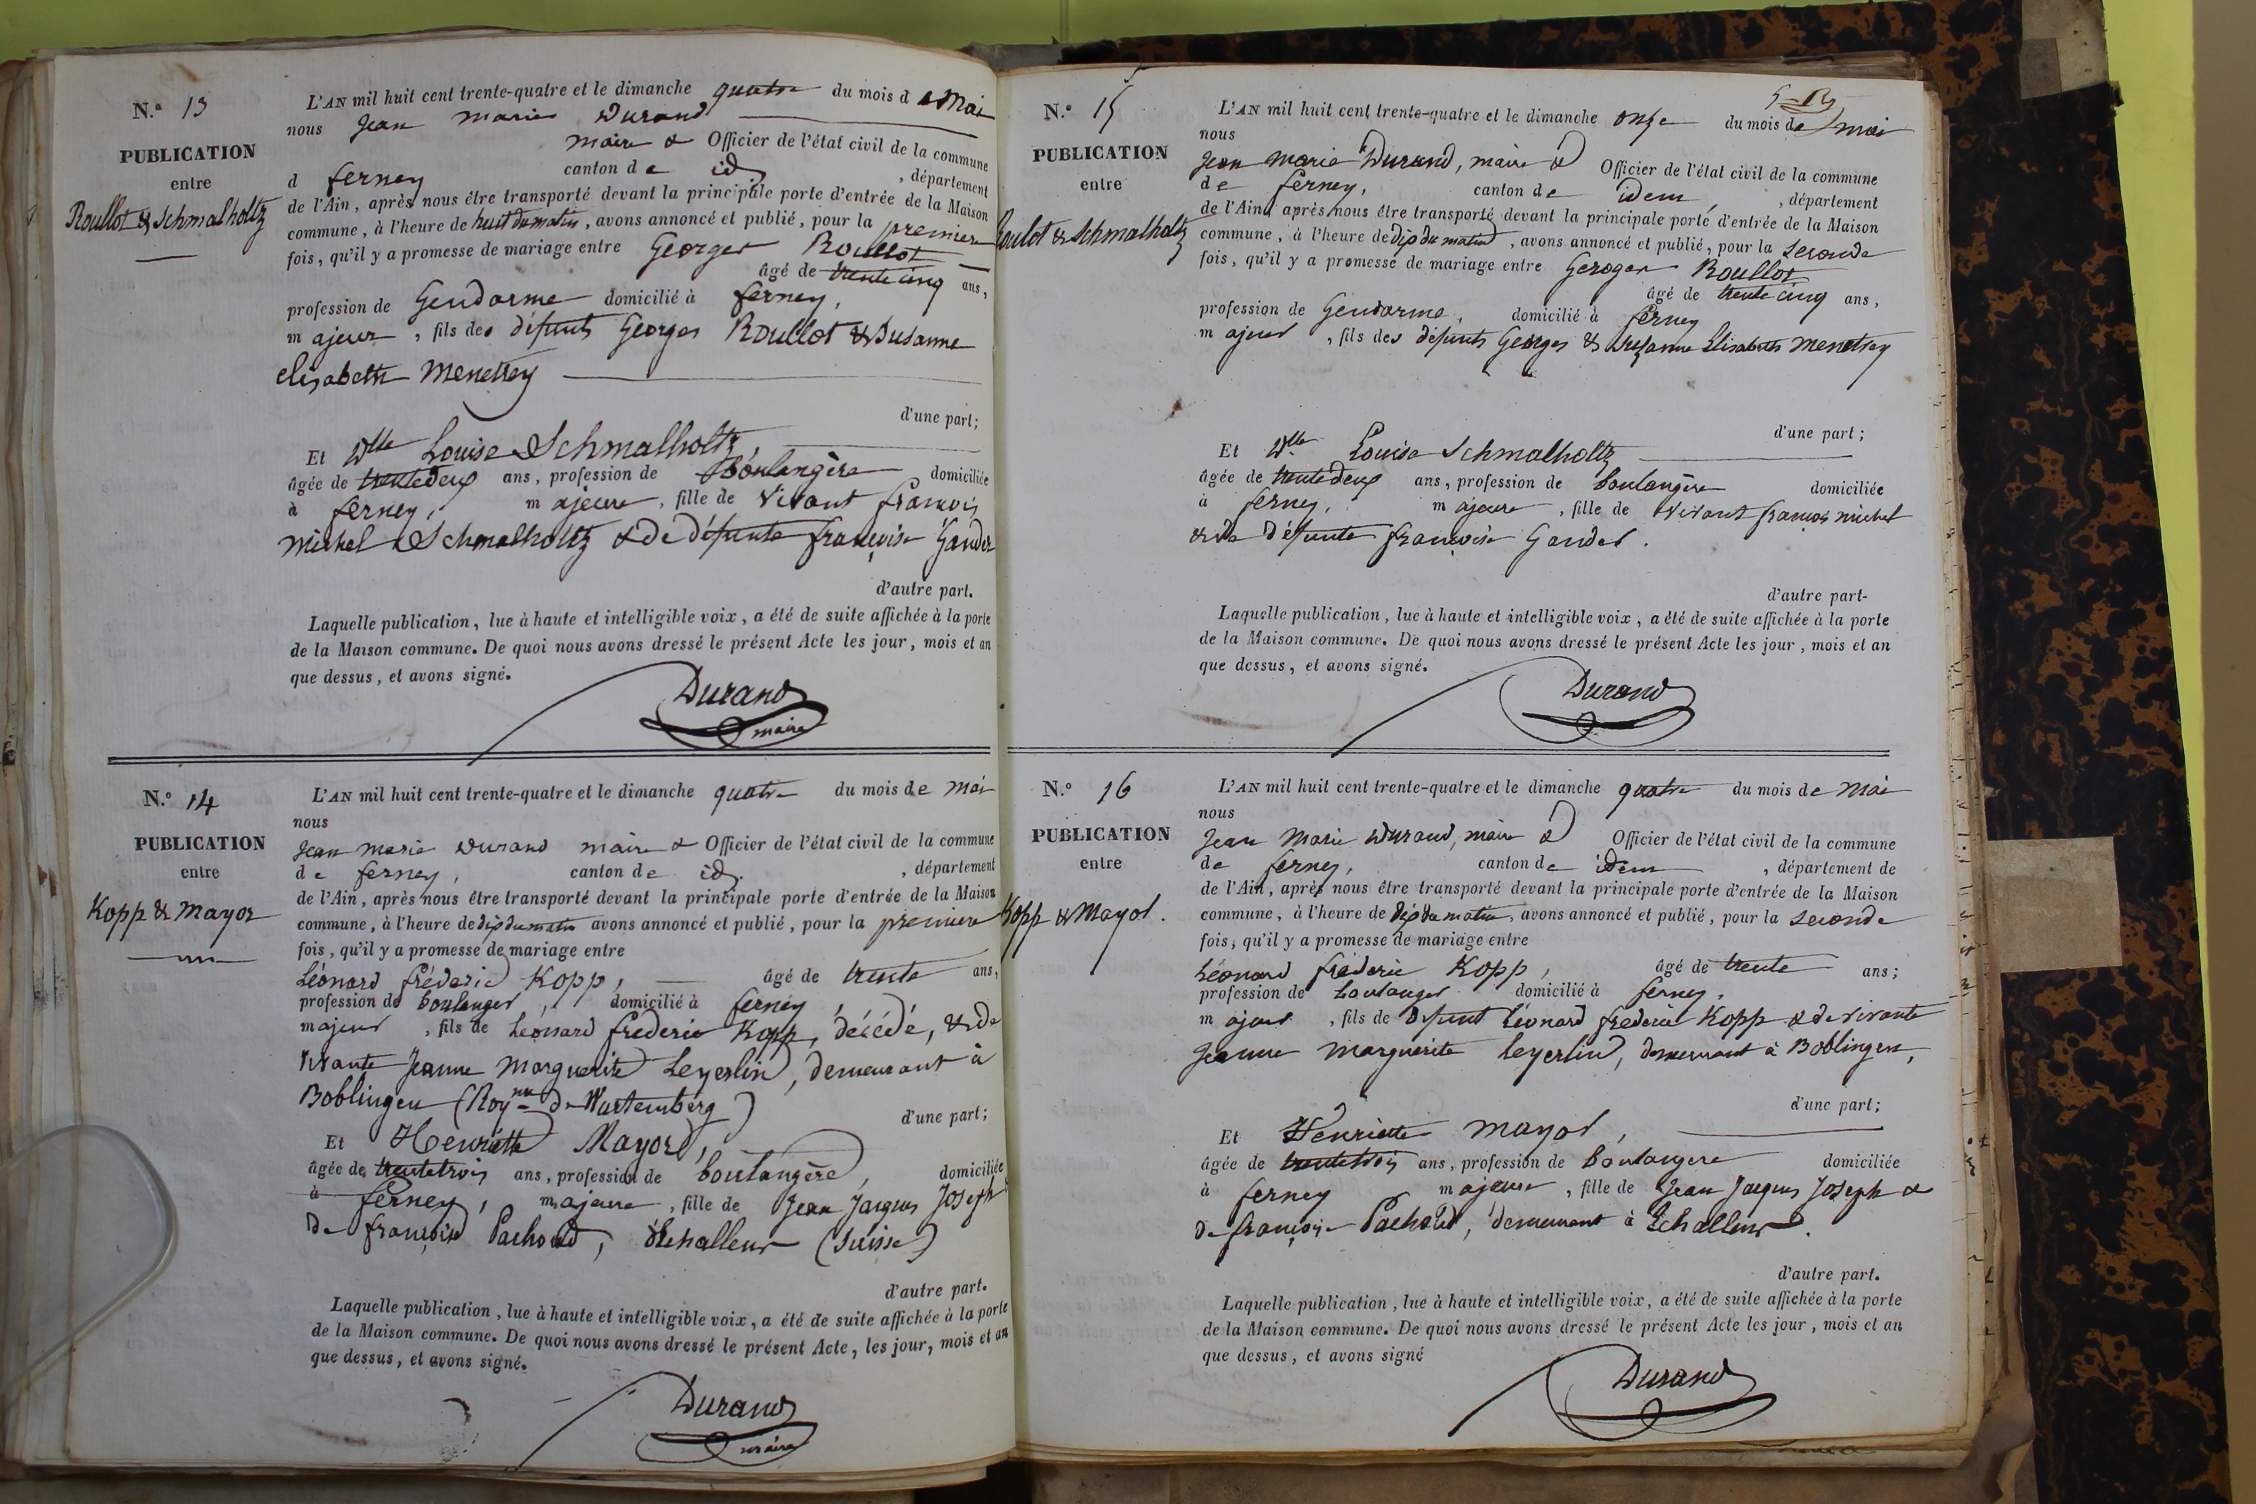 N.° 13
PUBLICATION
entre
Roullot & Schmalholtz
L'AN mil huit cent trente-quatre et le dimanche quatre du mois d e Mai
nous Jean Marie Durand
maire & Officier de l'état civil de la commune
d ferney canton de id , département
de l'Ain, après nous être transporté devant la principale porte d'entrée de la Maison
commune, à l'heure de huit du matin, avons annoncé et publié, pour la premiere
fois, qu'il y a promesse de mariage entre Georges Roullot
âgé de trente cinq ans,
profession de Gendarme domicilié à ferney,
majeur, fils des défunts Georges Roullot & Susanne
elisabeth Menetrey
d'une part;
Et Dlle Louise Schmalholtz,
âgée de trente deux ans, profession de Boulangère domiciliée
à ferney, majeure, fille de vivant françois
Michel Schmalholtz & de défunte françoise Gander
d'autre part.
Laquelle publication, lue à haute et intelligible voix, a été de suite affichée à la porte
de la Maison commune. De quoi nous avons dressé le présent Acte les jour, mois et an
que dessus, et avons signé.
Durand
maire
N.° 14
PUBLICATION
entre
Kopp & Mayor
L'AN mil huit cent trente-quatre et le dimanche quatre du mois de Mai
nous
Jean Marie Durand maire & Officier de l'état civil de la commune
de ferney, canton de id. , département
de l'Ain, après nous être transporté devant la principale porte d'entrée de la Maison
commune, à l'heure de dix du matin avons annoncé et publié, pour la premiere
fois, qu'il y a promesse de mariage entre
Léonard fréderic Kopp, âgé de trente ans,
profession de boulanger, domicilié à ferney,
majeur, fils de Léonard frederic Kopp, décédé, & de
vivante Jeanne Marguerite Leyerlin, demeurant à
Boblingen (Roy.me de Wurtemberg)
d'une part;
Et Henriette Mayor,
âgée de trente trois ans, profession de boulangère, domiciliée
à ferney, majeure, fille de Jean Jacques Joseph &
de françoise Pachoud, (Suisse)
d'autre part.
Laquelle publication, lue à haute et intelligible voix, a été de suite affichée à la porte
de la Maison commune. De quoi nous avons dressé le présent Acte, les jour, mois et an
que dessus, et avons signé.
Durand
maire
N.° 15
PUBLICATION
entre
Roulot & Schmalholtz
L'AN mil huit cent trente-quatre et le dimanche onze du mois de mai
nous
Jean Marie Durand, maire & Officier de l'état civil de la commune
de ferney, canton de idem , département
de l'Ain, après nous être transporté devant la principale porte d'entrée de la Maison
commune, à l'heure de dix du matin, avons annoncé et publié, pour la seconde
fois, qu'il y a promesse de mariage entre Geroger Roullot
âgé de trente cinq ans,
profession de Gendarme, domicilié à ferney
majeur, fils des défunts Georges & Suzanne Elisabeth Menetrey
d'une part;
Et Dlle Louise Schmalholtz
âgée de trente deux ans, profession de boulangère domiciliée
à ferney, majeure, fille de vivant françois michel
& de défunte françoise Gander.
d'autre part-
Laquelle publication, lue à haute et intelligible voix, a été de suite affichée à la porte
de la Maison commune. De quoi nous avons dressé le présent Acte les jour, mois et an
que dessus, et avons signé.
Durand
N.° 16
PUBLICATION
entre
Kopp & Mayor.
L'AN mil huit cent trente-quatre et le dimanche quatre du mois de Mai
nous
Jean Marie Durand, maire & Officier de l'état civil de la commune
de ferney, canton de idem , département de
de l'Ain, après nous être transporté devant la principale porte d'entrée de la Maison
commune, à l'heure de dix du matin, avons annoncé et publié, pour la seconde
fois, qu'il y a promesse de mariage entre
Léonard fréderic Kopp, âgé de trente ans;
profession de boulanger domicilié à ferney,
majeur, fils de défunt Léonard frederic Kopp & de vivante
Jeanne Marguerite Leyerlin, demeurant à Boblingen,
d'une part;
Et Henriette mayor,
âgée de trente trois ans, profession de boulangere domiciliée
à ferney majeure, fille de Jean Jacques Joseph &
de françoise Pachoud, demeurant à Echallens.
d'autre part.
Laquelle publication, lue à haute et intelligible voix, a été de suite affichée à la porte
de la Maison commune. De quoi nous avons dressé le présent Acte les jour, mois et an
que dessus, et avons signé
Durand